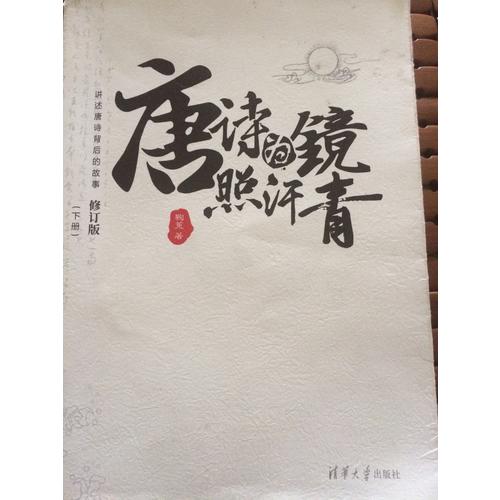 唐诗的镜
照汗青
讲述唐诗背后的故事
修订版
（下册）
鞠菟 著
清华大学出版社